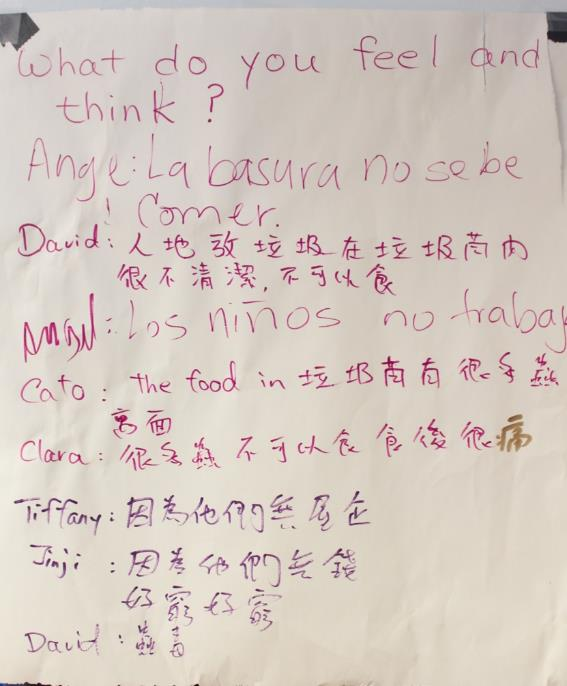 What do you feel and
think ?
Ange: La basura no se be
! Comer.
David: 人地放垃圾在垃圾筒內
很不清潔,不可以食
Angel: Los niños no trabaj
Cato: the food in 垃圾筒有很多蟲
裏面
Clara: 很多蟲不可以食 食後很痛
Tiffany: 因為他們無屋企
Jinji : 因為他們無錢
好窮好窮
David : 蟲毒